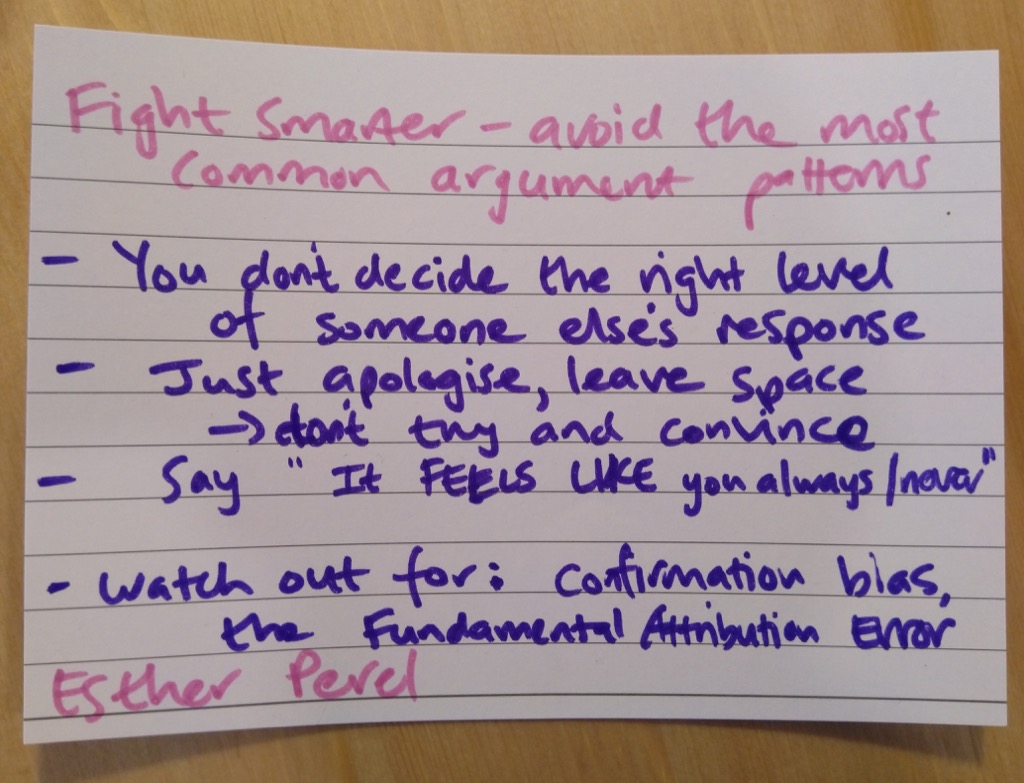 Fight smarter - avoid the most
common argument patterns
- You don't decide the right level
of someone else's response
- Just apologise, leave space
→ don't try and convince
- Say "It FEELS LIKE you always/never"
- Watch out for: confirmation bias,
the Fundamental Attribution Error
Esther Perel